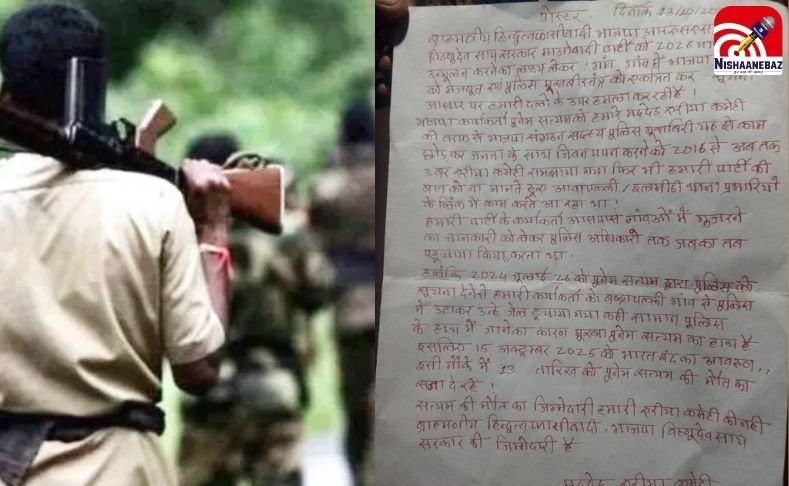 पोस्टर दिनांक 13/10/20
NISHAANEBAZ
ब्राह्मणीय हिन्दुत्व फासीवादी भाजपा आरएसएस
विष्णुदेव साय सरकार माओवादी पार्टी को 2026
उन्मूलन करने का लक्ष्य लेकर गांव, गांव में भाजपा
को मजबूत एवं पुलिस मुखबीर तंत्र को एकत्रित कर
आधार पर हमारी दलों के उपर हमला कर रही है!
भाजपा कार्यकर्ता पुनेम सत्यम को हमारे मददेड़ एरीया कमेटी
की तरफ से भाजपा संगठन सदस्य पुलिस मुखबिरी यह से काम
छोड़ कर जनता के साथ जिवन यापन करने को 2016 से अब तक
3 बार एरीया कमेटी समझाया गया फिर भी हमारी पार्टी की
बात को ना मानते हुए आवापल्ली / इलमीडी थाना प्रभारियों
के लिंक में काम करते आ रहा था!
हमारी पार्टी के कार्यकर्ता आसपास गांवओं में गुजरने
का जानकारी को लेकर पुलिस अधिकारी तक जब का तब
पहूंचाया किया, करता था.
हालाँकि 2024 जूलाई 26 को पुनेम सत्यम द्वारा पुलिस को
सूचना देने से हमारी कार्यकर्ता को गांव से पुलिस
ने उठाकर उन्हें जेल गया कही सामान पुलिस
के हाथ में जाने का कारण पुनेम सत्यम का हाथ है
इसलिए 15 अक्टूम्बर 2025 को भारत बंद का
इसी मौके में 13 तारिख को पुनेम सत्यम की मौत का
सजा दे रहे!
सत्यम की मौत का जिम्मेदारी हमारी एरीया कमेटी की नही
ब्राह्मणीय हिन्दुत्व फासीवादी, भाजपा विष्णुदेव साय
सरकार की जिम्मेदारी है
मददेड़ एरीया कमेटी